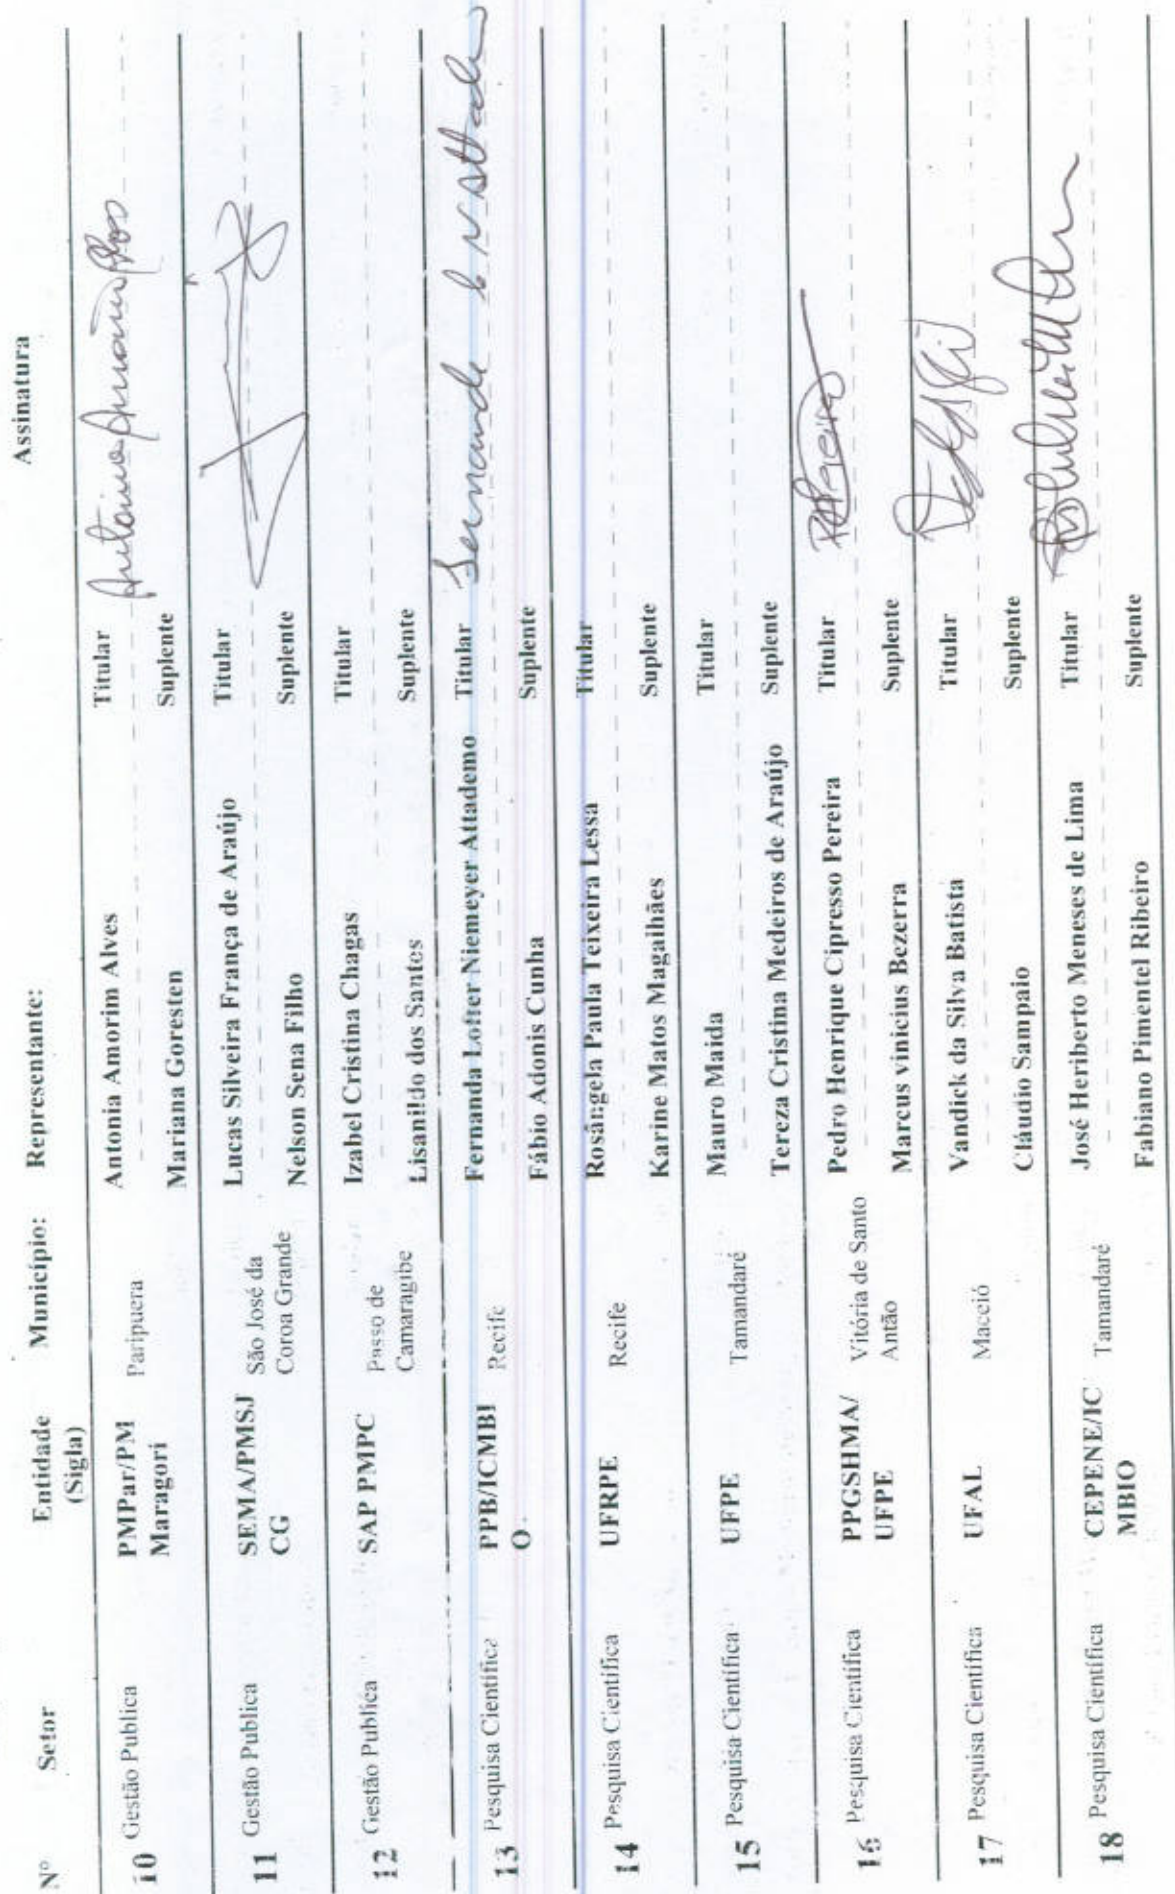 Nº Setor Entidade (Sigla) Município: Representante: Assinatura
10 Gestão Publica PMPar/PM Paripuera Antonia Amorim Alves Titular
Maragori Mariana Goresten Suplente
11 Gestão Publica SEMA/PMSJ São José da Lucas Silveira França de Araújo Titular
CG Coroa Grande Nelson Sena Filho Suplente
12 Gestão Publica SAP PMPC Passo de Izabel Cristina Chagas Titular
Camaragibe Lisanildo dos Santos Suplente
13 Pesquisa Científica PPB/ICMBI Recife Fernanda Lofter Niemeyer Attademo Titular
O. Fábio Adonis Cunha Suplente
14 Pesquisa Científica UFRPE Recife Rosângela Paula Teixeira Lessa Titular
Karine Matos Magalhães Suplente
15 Pesquisa Científica UFPE Tamandaré Mauro Maida Titular
Tereza Cristina Medeiros de Araújo Suplente
16 Pesquisa Científica PPGSHMA/ Vitória de Santo Pedro Henrique Cipresso Pereira Titular
UFPE Antão Marcus vinicius Bezerra Suplente
17 Pesquisa Científica UFAL Macció Vandick da Silva Batista Titular
Cláudio Sampaio Suplente
18 Pesquisa Científica CEPENE/IC Tamandaré José Heriberto Meneses de Lima Titular
MBIO Fabiano Pimentel Ribeiro Suplente